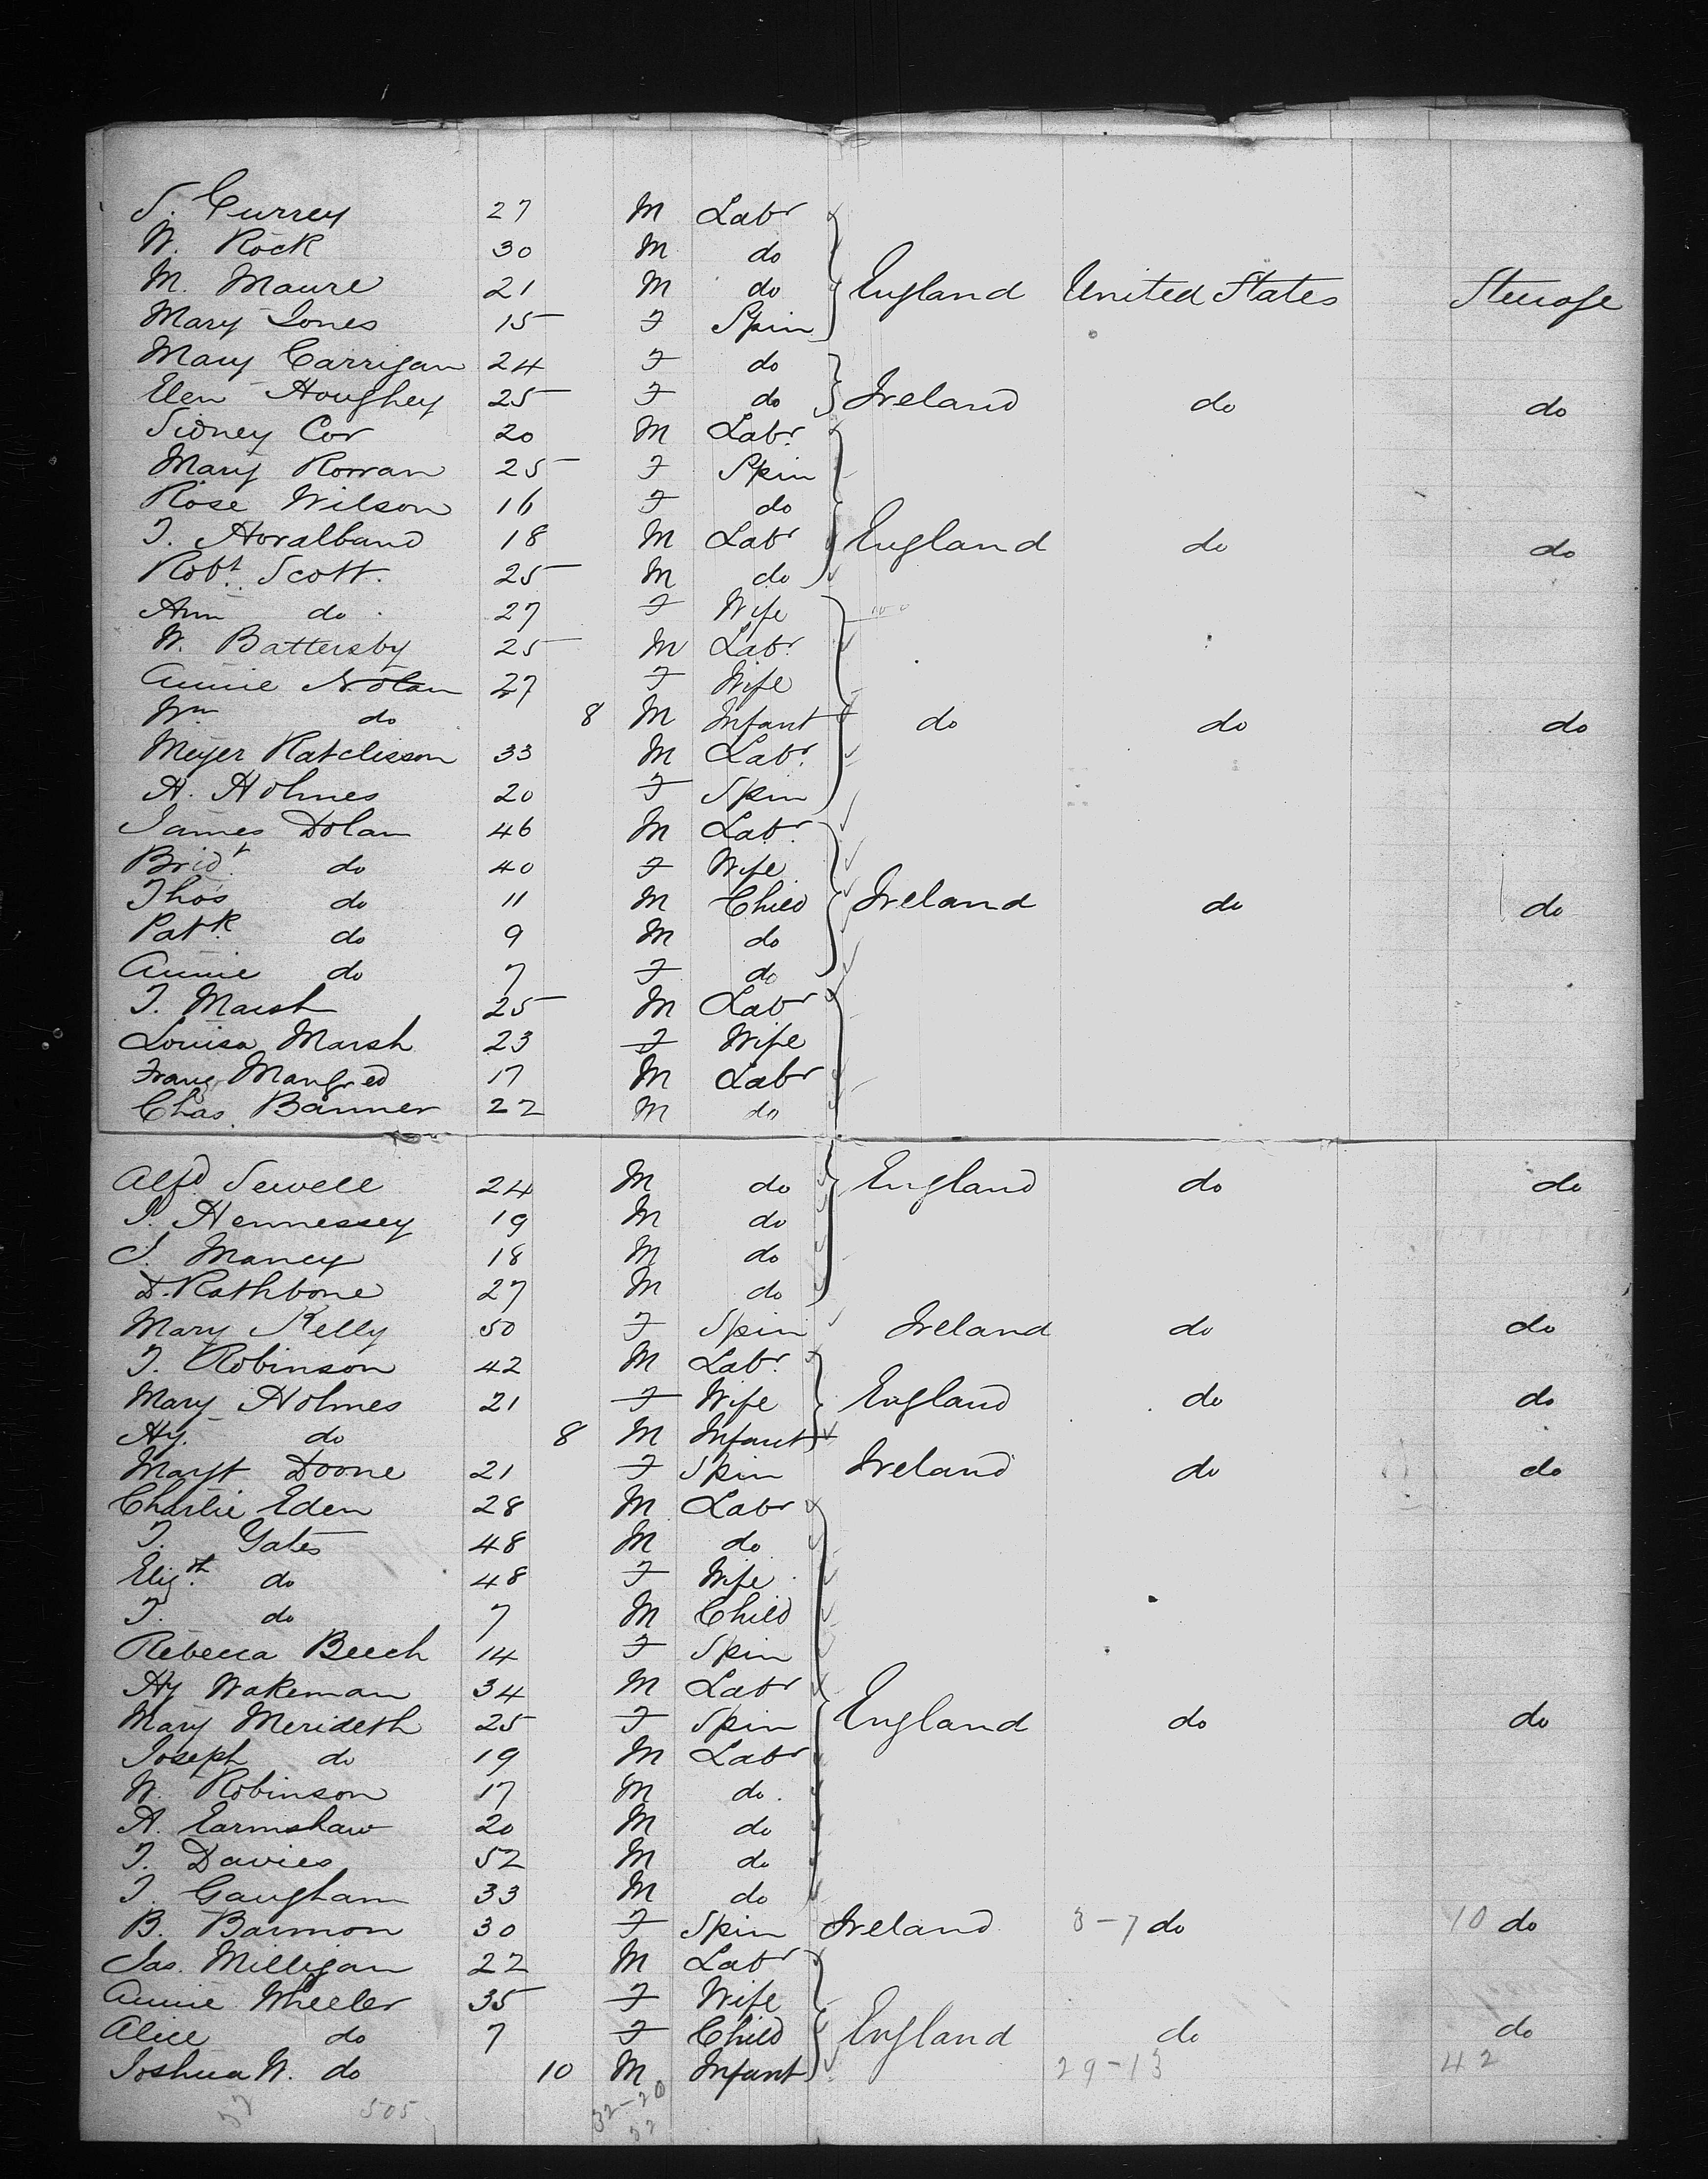 S. Currey 27 M Labr
W. Rock 30 M do
M. Maure 21 M do England United States Steerage
Mary Jones 15 F Spin
Mary Carrigan 24 F do
Elen Houghey 25 F do Ireland do do
Sidney Cox 20 M Labr
Mary Rowan 25 F Spin
Rose Wilson 16 F do
T. Horalband 18 M Labr England do do
Robt. Scott. 25 M do
Ann do 27 F Wife
W. Battersby 25 M Labr
Annie Nolan 27 F Wife
Wm do 8 M Infant do do do
Meyer Ratclisson 33 M Labr
A. Holmes 20 F Spin
James Dolan 46 M Labr
Bridt. do 40 F Wife
Thos do 11 M Child Ireland do do
Patk do 9 M do
Annie do 7 F do
T. Marsh 25 M Labr
Louisa Marsh 23 F Wife
Franz Manfred 17 M Labr
Chas. Banner 22 M do
Alfd Sewell 24 M do England do do
P. Hennessey 19 M do
J. Maney 18 M do
D. Rathbone 27 M do
Mary Kelly 50 F Spin Ireland do do
T. Robinson 42 M Labr
Mary Holmes 21 F Wife England do do
Hy. do 8 M Infant
Margt Doone 21 F Spin Ireland do do
Charlie Eden 28 M Labr
T. Yates 48 M do
Eliz.th do 48 F Wife
T. do 7 M Child
Rebecca Beech 14 F Spin
Hy Wakeman 34 M Labr
Mary Merideth 25 F Spin England do do
Joseph do 19 M Labr
W. Robinson 17 M do
A. Earnshaw 20 M do
T. Davies 52 M do
T. Gaugham 33 M do
B. Barmon 30 F Spin Ireland 3-7 do 10 do
Jas. Milligan 22 M Labr
Annie Wheeler 35 F Wife
Alice do 7 F Child England do do
Joshua W. do 10 M Infant 29-13 42
505 32-20